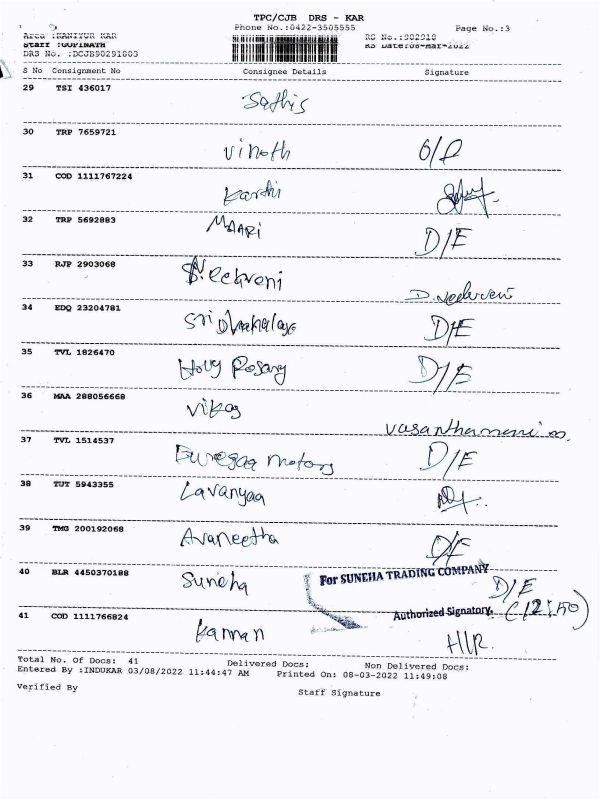 TPC/CJB DRS - KAR
Phone No.:0422-3505555 Page No.:3
Area :KANIYUR KAR RS No.:902918
Staff :GOPINATH RS Date:08-Mar-2022
DRS No. :DCJB90291803
S No Consignment No Consignee Details Signature
29 TSI 436017
Sathis
30 TRP 7659721
Vinoth
31 COD 1111767224
Karthi
32 TRP 5692883
MAARI D/E
33 RJP 2903068
34 EDQ 23204781
D/E
35 TVL 1826470
Holy Rosary D/E
36 MAA 288056668
Vikas
Vasanthamani
37 TVL 1514537
motors D/E
38 TUT 5943355
Lavanyaa
39 TMG 200192068
Avaneetha D/E
40 BLR 4450370188
Suneha For SUNEHA TRADING COMPANY D/E
Authorized Signatory.
41 COD 1111766824
Kannan
Total No. Of Docs: 41 Delivered Docs: Non Delivered Docs:
Entered By :INDUKAR 03/08/2022 11:44:47 AM Printed On: 08-03-2022 11:49:08
Verified By Staff Signature